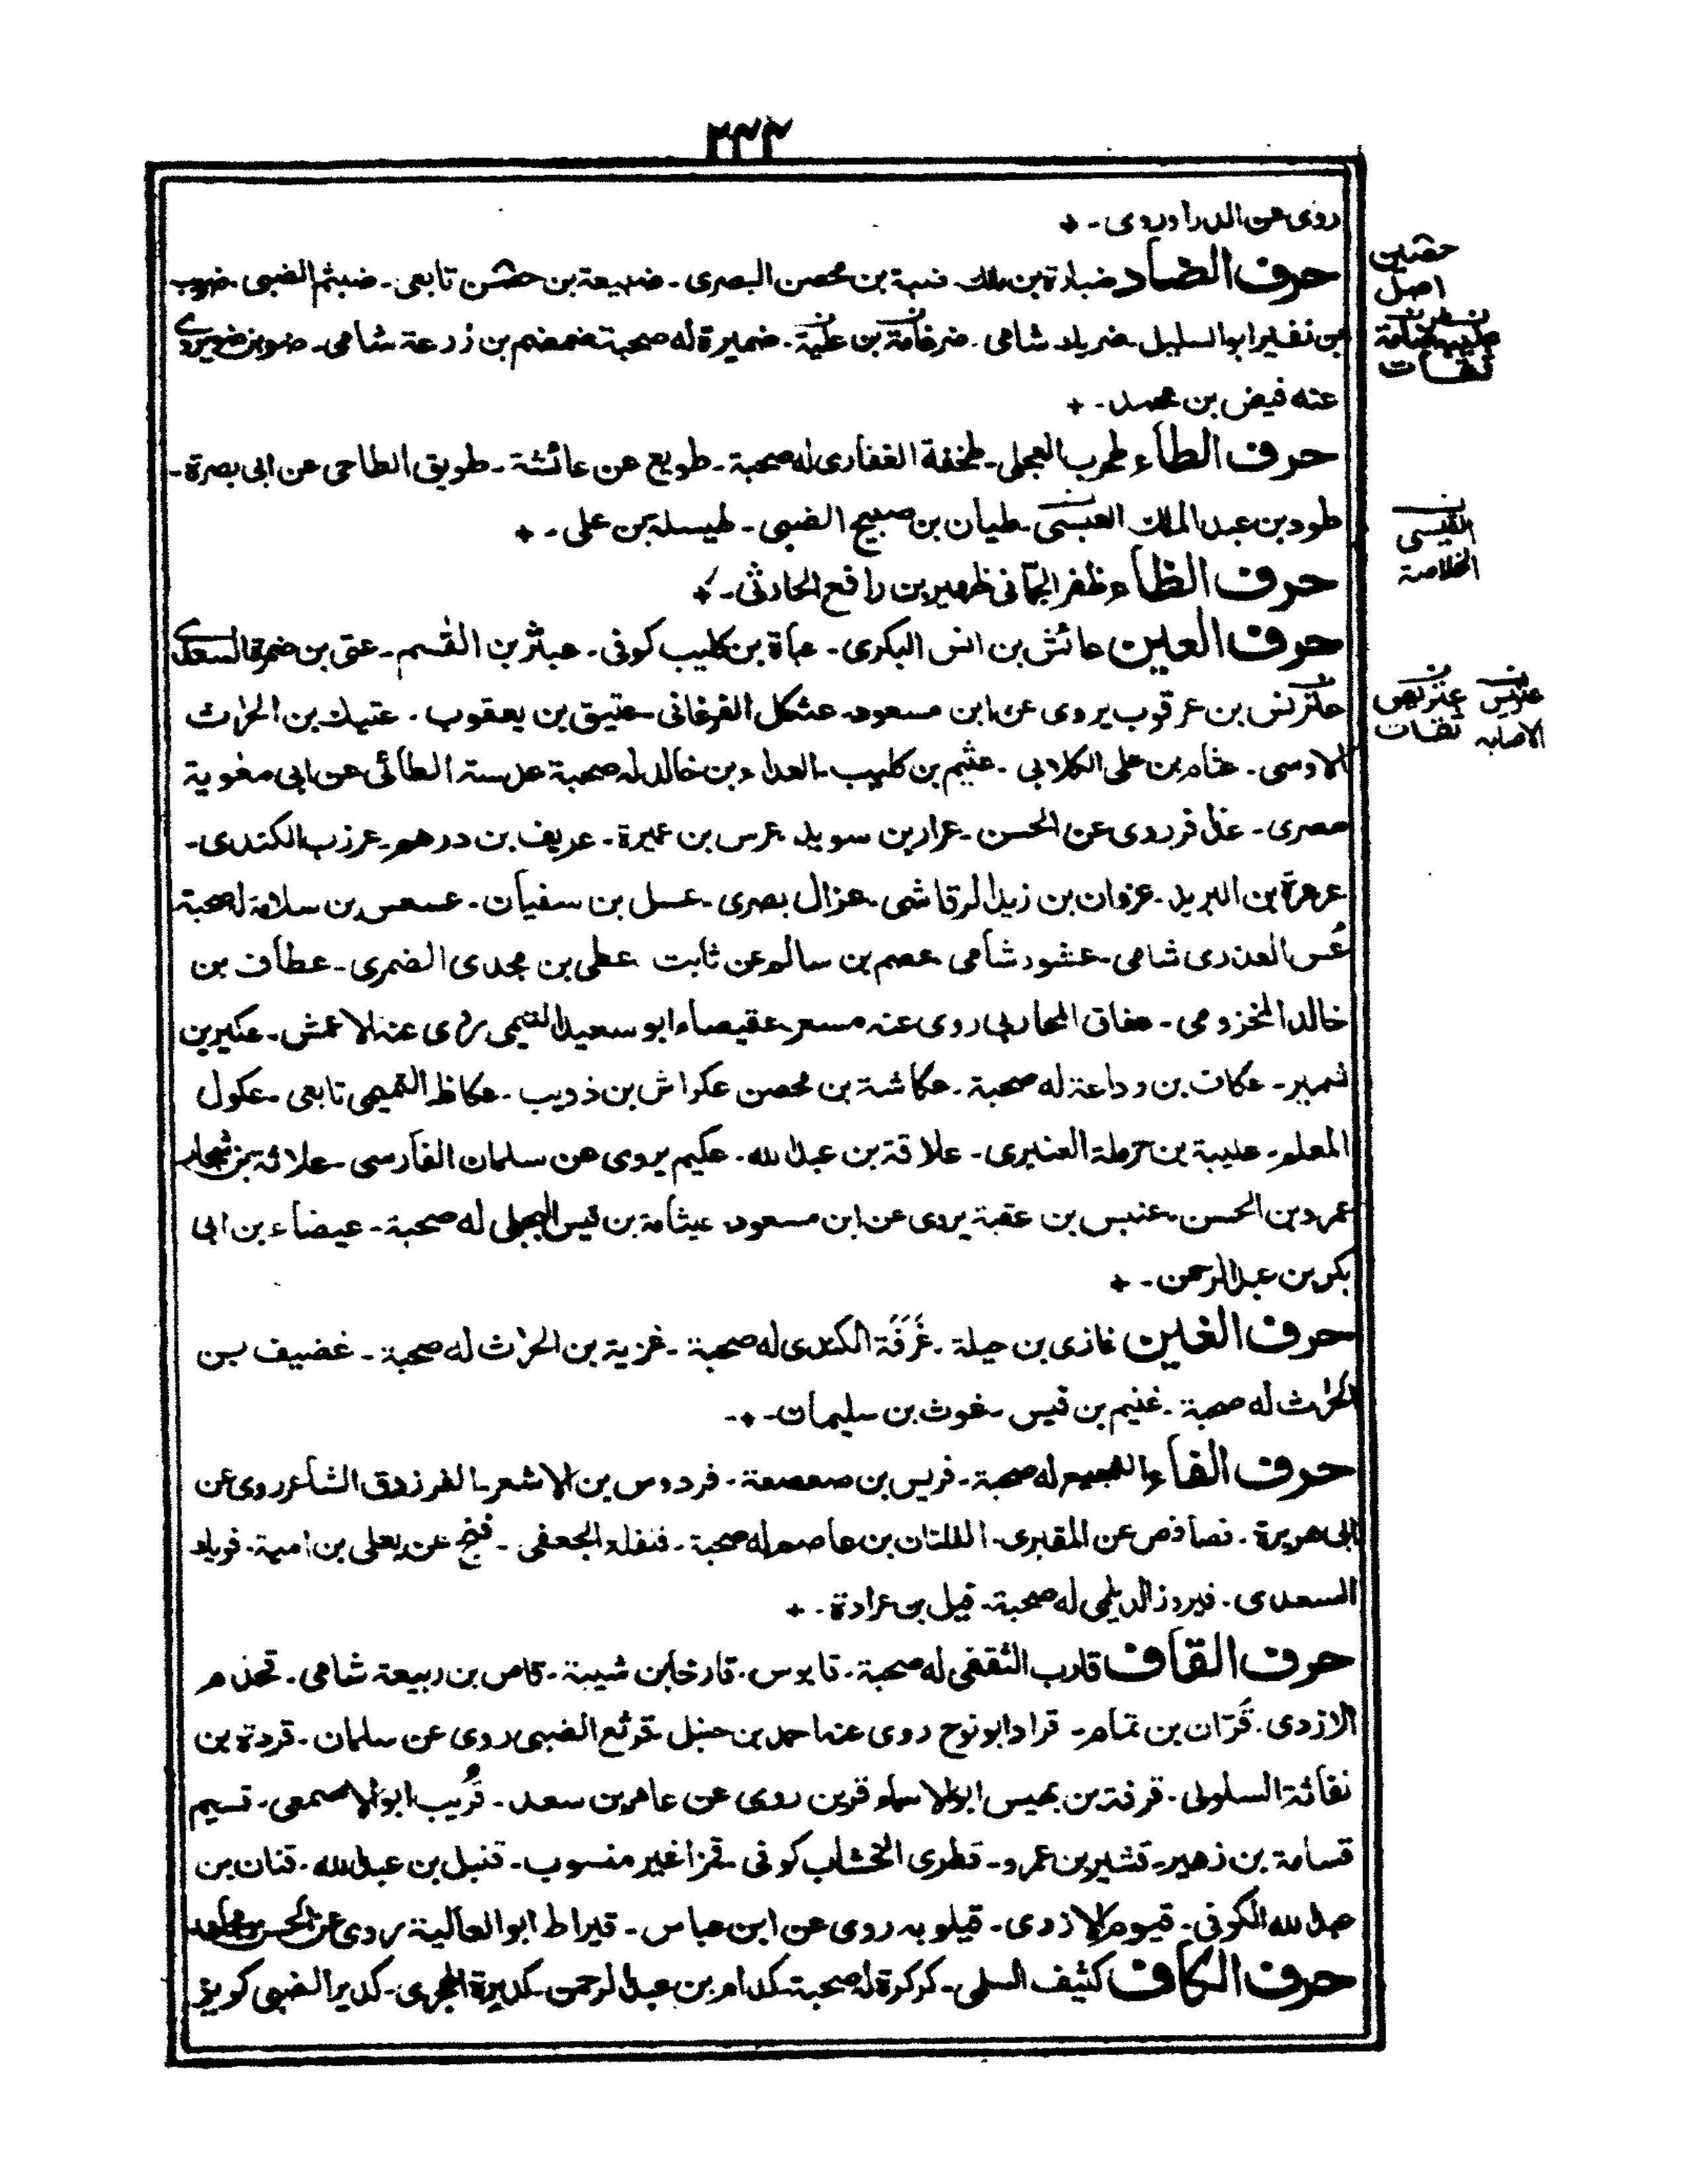 ٣٣٢
روى عن الدراوردى -
حرف الضاد ضبارة بن ملك . ضبة بن محصن البصرى - ضبيعة بن حصين تابعى - ضبثم الضبى . ضريب
بن نفير ابو السليل . ضريك شامى . ضرغامة بن علبة . ضميرة له صحبة ضمضم بن زرعة شامى -
عنه فيض بن محمد -
حرف الطاء طحرب العجلى - طخفة الغفارى له صحبة - طويع عن عائشة - طويق الطاحى عن ابى بصرة -
طود بن عبد الملك العبسى - طيان بن صبيح الضبى - طيسلة بن على -
حرف الظاء ظفر الجمانى ظهير بن رافع الحارثى -
حرف العين عائش بن انس البكرى - عباة بن كليب كوفى - عبثر بن القسم - عتى بن ضمرة السعدى
عتريس بن عرقوب يروى عن ابن مسعود - عثكل الفرغانى - عتيق بن يعقوب . عتيك بن الحرث
الاوسى . عثام بن على الكلابى . عثيم بن كليب . العداء بن خالد له صحبة عدسة الطائى عن ابى معوية
مصرى - عذافر روى عن الحسن - عرار بن سويد عرس بن عميرة - عريف بن درهم - عرزب الكندى -
عرعرة بن البريد - عزوان بن زيد الرقاشى - عزال بصرى - عسل بن سفيان - عسعس بن سلامة له صحبة
عُس العذرى شامى - عشور شامى عصم بن سالم عن ثابت عطى بن مجدى الضمرى - عطاف بن
خالد المخزومى - عفاق المحاربى روى عنه مسعر عقيصاء ابو سعيد التيمى روى عنه الاعمش - عكير بن
نمير - عكاف بن وداعة له صحبة - عكاشة بن محصن عكراش بن ذويب - عكاظ التميمى تابعى - عكول
المعلم - عليبة بن حرملة العنبرى - علاقة بن عبد الله . عكيم يروى عن سلمان الفارسى - علاثة بن شجار
عمرد بن الحسن - عنبس بن عقبة يروى عن ابن مسعود عيثامة بن قيس البجلى له صحبة - عيضاء بن ابى
بكر بن عبد الرحمن -
حرف الغين غازى بن جبلة - غَرَفَة الكندى له صحبة - غزية بن الحرث له صحبة - غضيف بن
الحرث له صحبة - غنيم بن قيس - غوث بن سليمان -
حرف الفاء الفجيع له صحبة - فريس بن صعصعة - فردوس بن الاشعر - الفرزدق الشاعر روى عن
ابى هريرة - نصافص عن المقبرى - الفلتان بن عاصم له صحبة - فنفلة الجعفى - فنج عن يعلى بن امية - فويك
السعدى - فيروز الديلمى له صحبة - فيل بن عرادة -
حرف القاف قارب الثقفى له صحبة - قابوس - قارظ بن شيبة - قاص بن ربيعة شامى - قحذم
الازدى - قُرّان بن تمام - قراد ابو نوح روى عنه احمد بن حنبل - قرثع الضبى روى عن سلمان - قردة بن
نفاثة السلولى - قرفة بن بهيس ابو الاسماء قرين روى عن عامر بن سعد - قُريب ابو الاصمعى - قسيم
قسامة بن زهير - قشير بن عمرو - قطرى الخشاب كوفى - قمزا غير منسوب - قنبل بن عبد الله - قنان بن
عبد الله الكوفى - قيوم الازدى - قيلويه روى عن ابن عباس - قيراط ابو العالية روى عن الحسن
حرف الكاف كثيف السلمى - كركرة له صحبة - كدام بن عبد الرحمن - كديرة الهجرى - كدير الضبى
حضين
اصل
ثقات
القيسى
الخلاصة
عتريس
الاصابه
ثقات